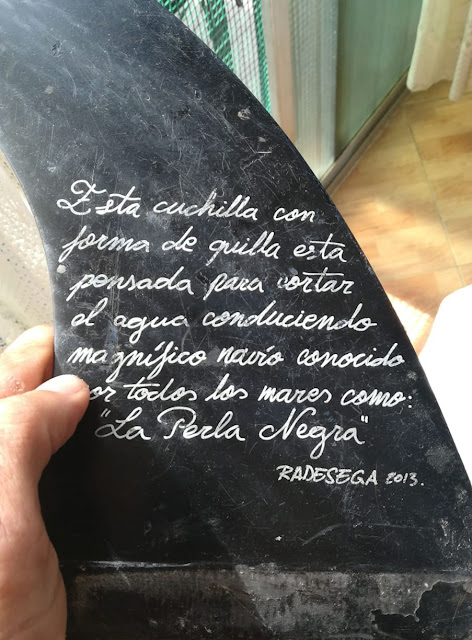 Esta cuchilla con
forma de quilla esta
pensada para cortar
el agua conduciendo
magnífico navío conocido
por todos los mares como:
"La Perla Negra"
RADESEGA 2013.